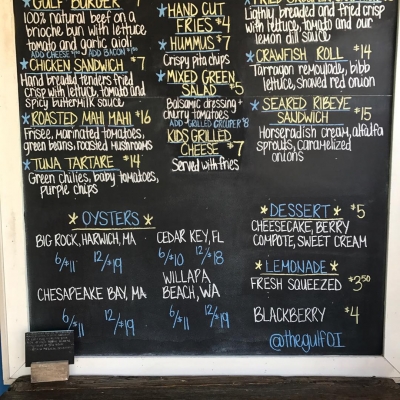 GULF BURGER
100% natural beef on a
brioche bun with lettuce
tomato and garlic aioli
ADD CHEESE ADD BACON
CHICKEN SANDWICH 7
Hand breaded tenders fried
crisp with lettuce, tomato and
spicy buttermilk sauce
ROASTED MAHI MAHI $16
Frisee, marinated tomatoes,
green beans, roasted mushrooms
TUNA TARTARE $14
Green chilies, baby tomatoes,
purple chips
HAND CUT
FRIES $4
HUMMUS $7
Crispy pita chips
MIXED GREEN
SALAD $5
Balsamic dressing +
cherry tomatoes
ADD GRILLED GROUPER $8
KIDS GRILLED
CHEESE $7
Served with fries
Lightly breaded and fried crisp
with lettuce, tomato and our
lemon aioli sauce
CRAWFISH ROLL $14
Tarragon remoulade, bibb
lettuce, shaved red onion
SEARED RIBEYE
SANDWICH $15
Horseradish cream, alfalfa
sprouts, caramelized
onions
OYSTERS
BIG ROCK, HARWICH, MA
6/$11 12/$19
CEDAR KEY, FL
6/$10 12/$18
CHESAPEAKE BAY, MA
6/$11 12/$19
WILLAPA
BEACH, WA
6/$11 12/$19
DESSERT $5
CHEESECAKE, BERRY
COMPOTE, SWEET CREAM
LEMONADE
FRESH SQUEEZED $3.50
BLACKBERRY $4
@thegulfOI